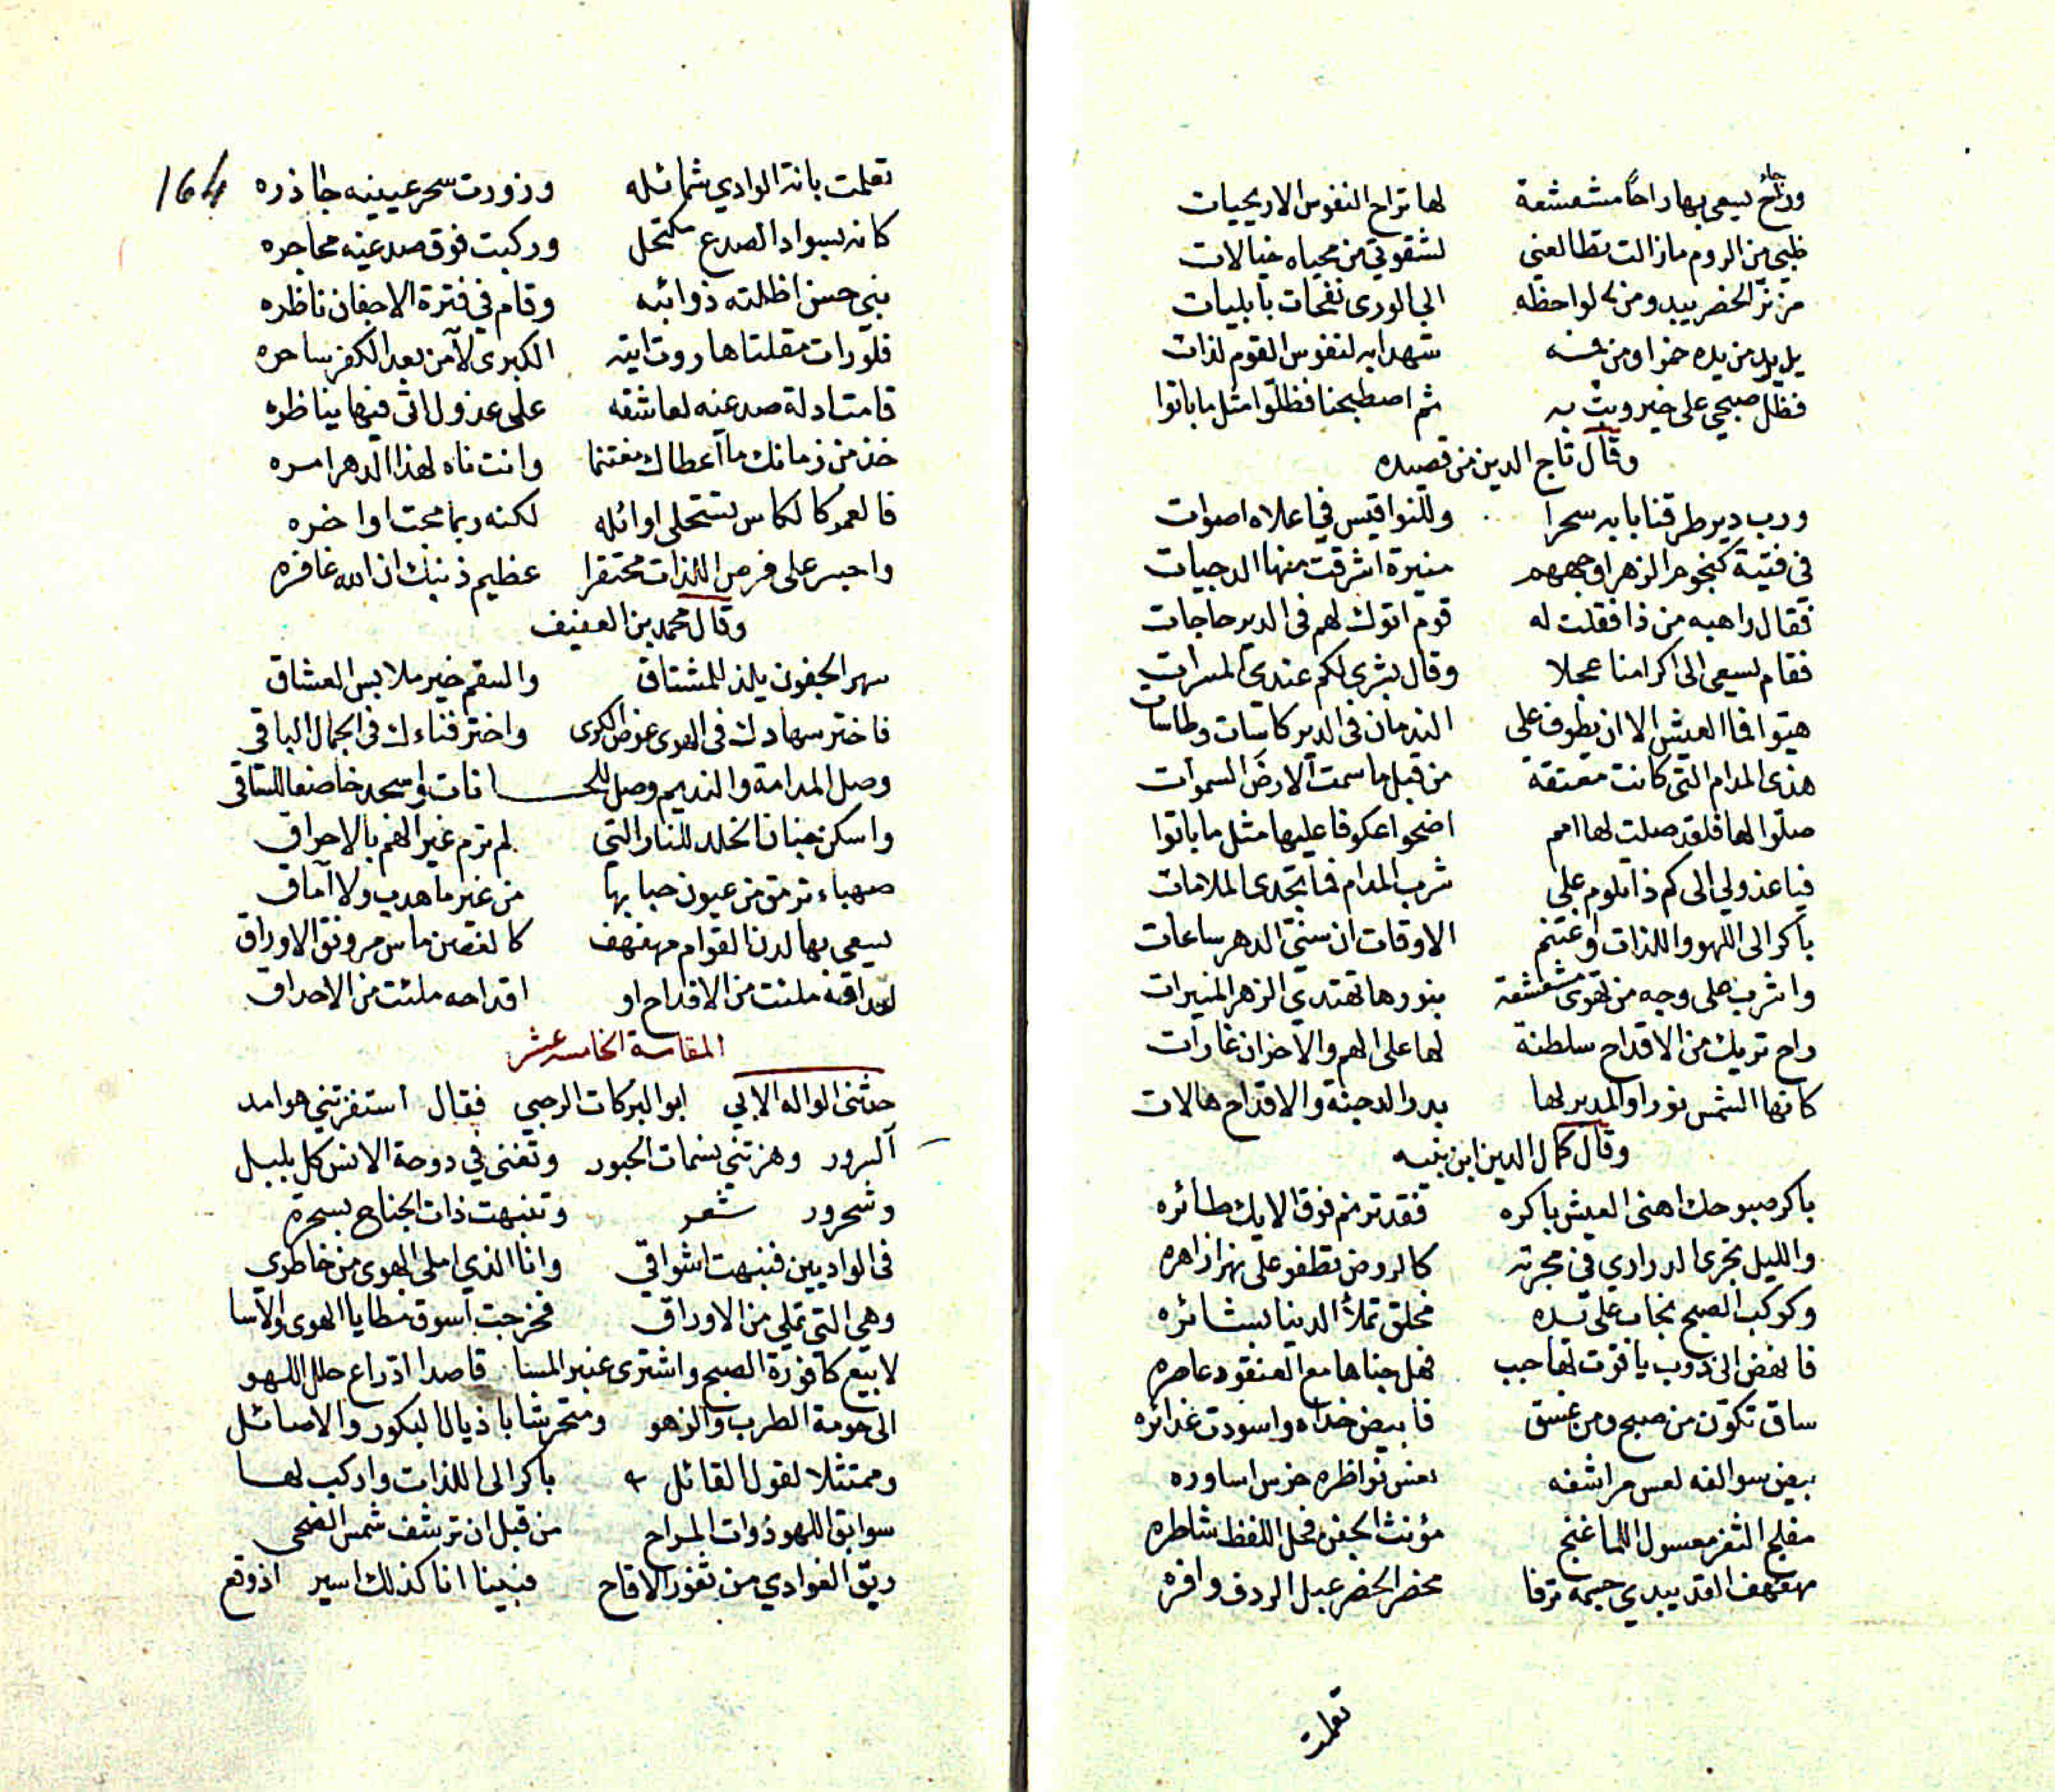 وراح يسعى بها راحا مشعشعة لها تراح النفوس الاريحيات
ظبي من الروم مازالت تطالعني لشقوتي من محياه خيالات
الى الورى نفحات بابليات
يدير من يده خمرا ومن فمه شهدا به لنفوس القوم لذات
فظل صبحي على خير وبت به ثم اصطبحنا فظلوا مثل ما باتوا
وقال تاج الدين من قصيده
ورب دير طرقنا بابه سحرا وللنواقيس في اعلاه اصوات
في فتية كنجوم الزهر اوجههم منيرة اشرقت منها الدجيات
فقال راهبه من ذا فقلت له قوم اتوك لهم في الدير حاجات
فقام يسعى الى اكرامنا عجلا وقال بشرى لكم عندي المسرات
هيتوا فما العيش الا ان يطوف على الندمان في الدير كاسات وطاسات
هذى المدام التي كانت معتقة من قبل ما سمت الارض السموات
صلوا لها فلقد صلت لها امم اضحوا عكوفا عليها مثل ما باتوا
فيا عذولي الى كم ذا تلوم على شرب المدام فما تجدى الملامات
باكر الى اللهو واللذات واغتنم الاوقات ان سني الدهر ساعات
واشرب على وجه من تهوى مشعشعة بنورها تهتدي الزهر المنيرات
راح تريك من الاقداح سلطنة لها على الهم والاحزان غارات
كانها الشمس نورا والمدير لها بدر الدجنة والاقداح هالات
وقال كمال الدين ابن نبيه
باكر صبوحك اهنى العيش باكره فقد ترنم فوق الايك طائره
والليل تجرى الدراري في مجرته كالروض تطفو على نهر ازاهره
وكوكب الصبح نجاب على يده مخلق تملأ الدنيا بشائره
فانهض الى ذوب ياقوت لها حبب فهل جناها مع العنقود عاصره
ساق تكون من صبح ومن غسق فابيض خداه واسودت غدائره
بيض سوالفه لعس مراشفه نعس نواظره خرس اساوره
مفلج الثغر معسول اللما غنج مؤنث الجفن فحل اللفظ شاطره
مهفهف القد يبدي جسمه ترفا مخصر الخصر عبل الردف وافره
تعلمت
164
تعلمت بانة الوادي شمائله وزورت سحر عينيه جاذره
كانه بسواد الصدغ مكتحل وركبت فوق صدغيه محاجره
نبي حسن اظلته ذوائبه وقام في فترة الاجفان ناظره
فلو رات مقلتا هاروت ايته الكبرى لآمن بعد الكفر ساحره
قامت ادلة صدغيه لعاشقه على عذول اتى فيها يناظره
خذ من زمانك ما اعطاك مغتنما وانت ناه لهذا الدهر امره
فالعمر كالكاس تستحلى اوائله لكنه ربما مجت اواخره
واجسر على فرص اللذات محتقرا عظيم ذنبك ان الله غافره
وقال محمد بن العفيف
سهر الجفون يلذ للمشتاق والسقم خير ملابس العشاق
فاختر سهادك في الهوى عوض الكرى واختر فناءك في الجمال الباقي
وصل المدامة والنديم وصل للحانات واسجد خاضعا للساقي
واسكن جنان الخلد للنار التي لم ترم غير الهم بالاحراق
صهباء ترمق من عيون حبابها من غير ما هدب ولا آماق
يسعى بها لدن القوام مهفهف كالغصن ماس مرونق الاوراق
احداقه ملئت من الاقداح او اقداحه ملئت من الاحداق
المقامة الخامسة عشر
حدثني الواله الابي ابو البركات الرحبي فقال استفزتني هوامد
السرور وهزتني نسمات الحبور وتغنى في دوحة الانس كل بلبل
وشحرور شعر وتنبهت ذات الجناح بسحرة
في الواديين فنبهت اشواقي وانا الذي املى الهوى من خاطري
وهي التي تملي من الاوراق فخرجت اسوق مطايا الهوى والاسا
لابيع كافورة الصبح واشترى عنبر المسا قاصدا ادراع حلل اللهو
الى حومة الطرب والزهو ومتحرشا باذيال البكور والاصائل
وممتثلا لقول القائل باكر الى اللذات واركب لها
سوابق اللهو ذوات المراح من قبل ان ترشف شمس الضحى
ريق الغوادي من ثغور الاقاح فبينا انا كذلك اسير اذ وقع